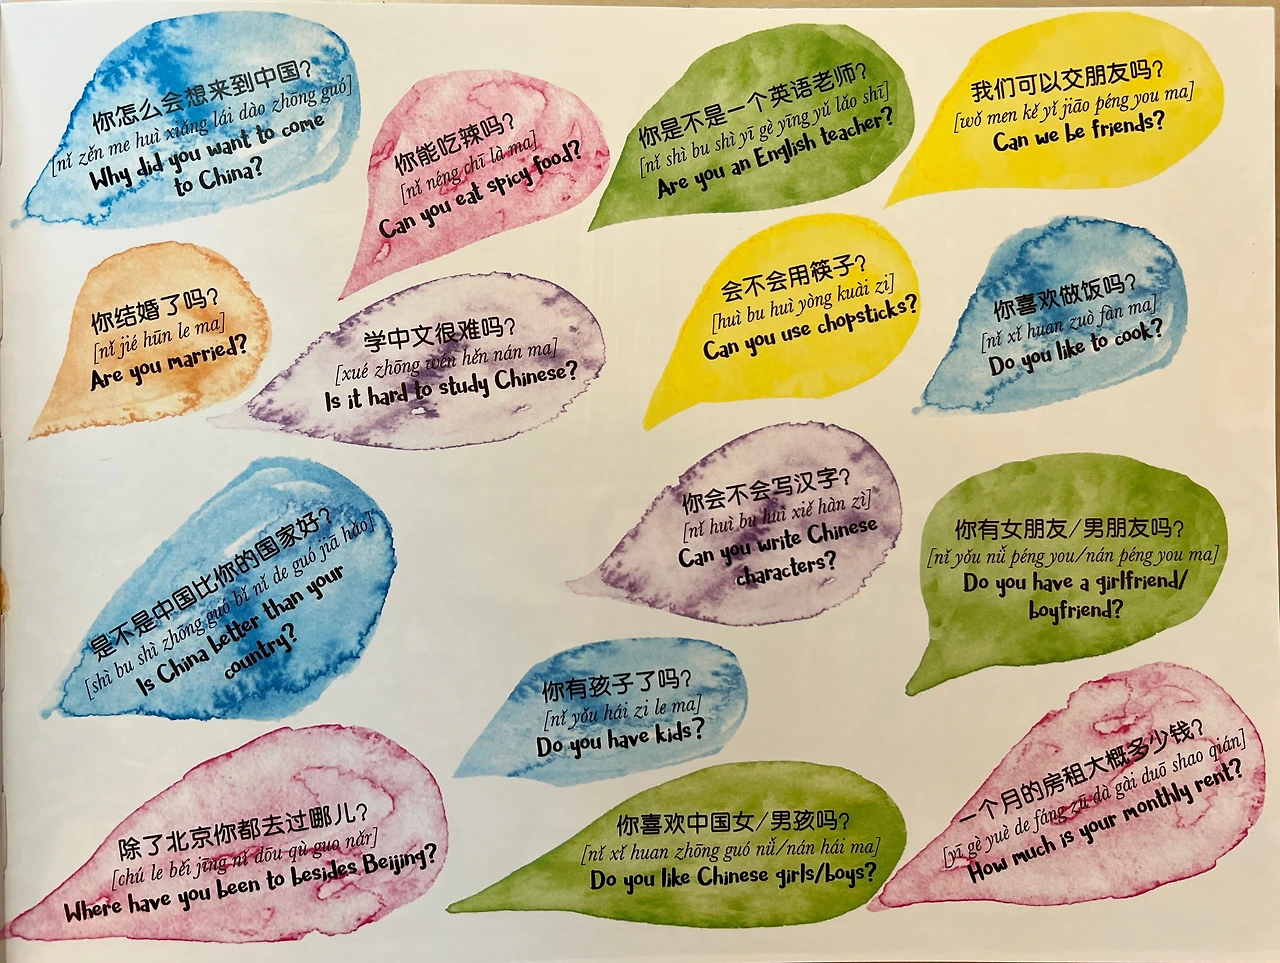 你怎么会想来到中国?
[nǐ zěn me huì xiǎng lái dào zhōng guó]
Why did you want to come
to China?
你能吃辣吗?
[nǐ néng chī là ma]
Can you eat spicy food?
你是不是一个英语老师?
[nǐ shì bu shì yī gè yīng yǔ lǎo shī]
Are you an English teacher?
我们可以交朋友吗?
[wǒ men kě yǐ jiāo péng you ma]
Can we be friends?
你结婚了吗?
[nǐ jié hūn le ma]
Are you married?
学中文很难吗?
[xué zhōng wén hěn nán ma]
Is it hard to study Chinese?
会不会用筷子?
[huì bu huì yòng kuài zi]
Can you use chopsticks?
你喜欢做饭吗?
[nǐ xǐ huan zuò fàn ma]
Do you like to cook?
是不是中国比你的国家好?
[shì bu shì zhōng guó bǐ nǐ de guó jiā hǎo]
Is China better than your
country?
你会不会写汉字?
[nǐ huì bu huì xiě hàn zì]
Can you write Chinese
characters?
你有女朋友/男朋友吗?
[nǐ yǒu nǚ péng you/nán péng you ma]
Do you have a girlfriend/
boyfriend?
你有孩子了吗?
[nǐ yǒu hái zi le ma]
Do you have kids?
除了北京你都去过哪儿?
[chú le běi jīng nǐ dōu qù guo nǎr]
Where have you been to besides Beijing?
你喜欢中国女/男孩吗?
[nǐ xǐ huan zhōng guó nǚ/nán hái ma]
Do you like Chinese girls/boys?
一个月的房租大概多少钱?
[yī gè yuè de fáng zū dà gài duō shao qián]
How much is your monthly rent?